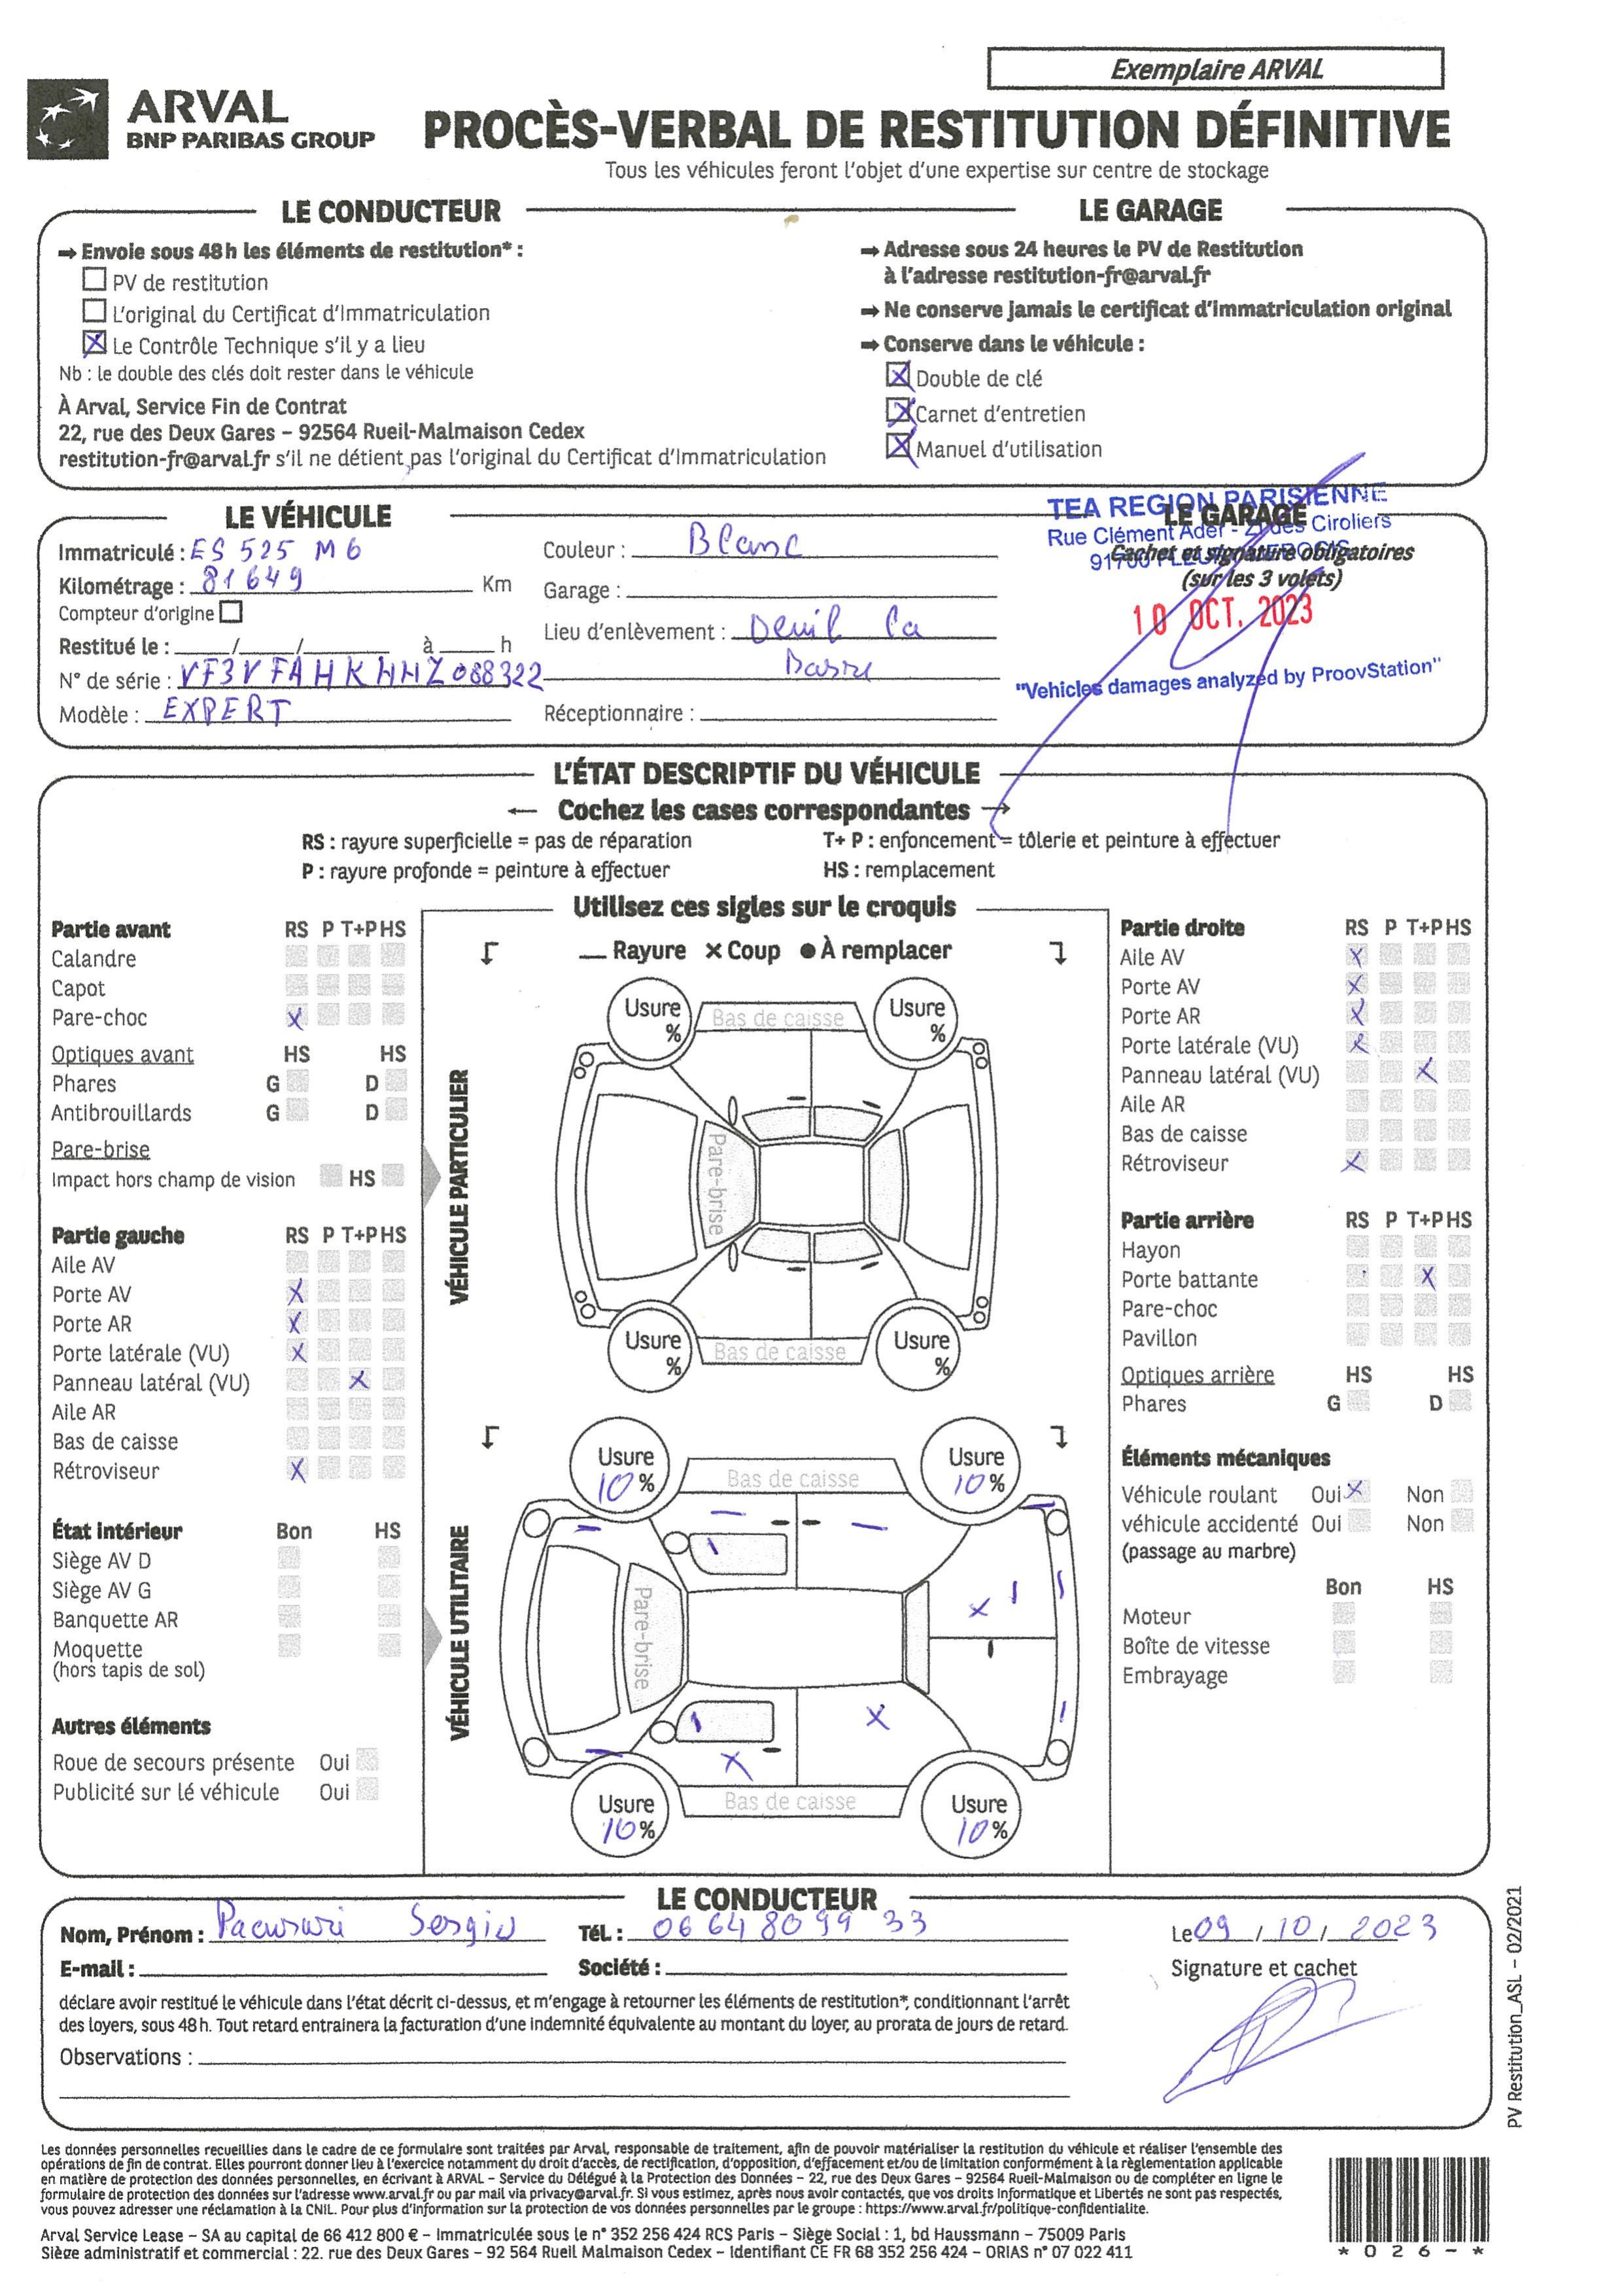 Exemplaire ARVAL
ARVAL
BNP PARIBAS GROUP
PROCÈS-VERBAL DE RESTITUTION DÉFINITIVE
Tous les véhicules feront l'objet d'une expertise sur centre de stockage
LE CONDUCTEUR
➞ Envoie sous 48h les éléments de restitution* :
PV de restitution
L'original du Certificat d'Immatriculation
X Le Contrôle Technique s'il y a lieu
Nb : le double des clés doit rester dans le véhicule
À Arval, Service Fin de Contrat
22, rue des Deux Gares – 92564 Rueil-Malmaison Cedex
restitution-fr@arval.fr s'il ne détient pas l'original du Certificat d'Immatriculation
LE GARAGE
➞ Adresse sous 24 heures le PV de Restitution
à l'adresse restitution-fr@arval.fr
➞ Ne conserve jamais le certificat d'immatriculation original
➞ Conserve dans le véhicule :
X Double de clé
X Carnet d'entretien
X Manuel d'utilisation
LE VÉHICULE
Immatriculé : ES 525 MG
Kilométrage : 81649 Km
Compteur d'origine
Restitué le : / / à h
N° de série : VF3VFAHKHHZ088322
Modèle : EXPERT
Couleur : Blanc
Garage :
Lieu d'enlèvement : Deuil la
Barre
Réceptionnaire :
TEA REGION PARISIENNE
LE GARAGE
Rue Clément Ader - ZI des Ciroliers
Cachet et signature obligatoires
(sur les 3 volets)
10 OCT. 2023
"Vehicles damages analyzed by ProovStation"
L'ÉTAT DESCRIPTIF DU VÉHICULE
← Cochez les cases correspondantes →
RS : rayure superficielle = pas de réparation
P : rayure profonde = peinture à effectuer
T+ P : enfoncement = tôlerie et peinture à effectuer
HS : remplacement
Utilisez ces sigles sur le croquis
— Rayure × Coup ● À remplacer
Partie avant RS P T+P HS
Calandre
Capot
Pare-choc X
Optiques avant HS HS
Phares G D
Antibrouillards G D
Pare-brise
Impact hors champ de vision HS
Partie gauche RS P T+P HS
Aile AV
Porte AV X
Porte AR X
Porte latérale (VU) X
Panneau latéral (VU) X
Aile AR
Bas de caisse
Rétroviseur X
État intérieur Bon HS
Siège AV D
Siège AV G
Banquette AR
Moquette
(hors tapis de sol)
Autres éléments
Roue de secours présente Oui
Publicité sur lé véhicule Oui
VÉHICULE PARTICULIER
Usure %
Bas de caisse
Usure %
Pare-brise
Usure %
Bas de caisse
Usure %
VÉHICULE UTILITAIRE
Usure 10%
Bas de caisse
Usure 10%
Pare-brise
Usure 10%
Bas de caisse
Usure 10%
Partie droite RS P T+P HS
Aile AV X
Porte AV X
Porte AR X
Porte latérale (VU) X
Panneau latéral (VU) X
Aile AR
Bas de caisse
Rétroviseur X
Partie arrière RS P T+P HS
Hayon
Porte battante X
Pare-choc
Pavillon
Optiques arrière HS HS
Phares G D
Éléments mécaniques
Véhicule roulant Oui X Non
véhicule accidenté Oui Non
(passage au marbre)
Bon HS
Moteur
Boîte de vitesse
Embrayage
LE CONDUCTEUR
Nom, Prénom : Pacurari Sergiu
TéL : 06 64 80 99 33
Le 09 / 10 / 2023
E-mail :
Société :
Signature et cachet
déclare avoir restitué le véhicule dans l'état décrit ci-dessus, et m'engage à retourner les éléments de restitution*, conditionnant l'arrêt
des loyers, sous 48h. Tout retard entrainera la facturation d'une indemnité équivalente au montant du loyer, au prorata de jours de retard.
Observations :
PV Restitution_ASL – 02/2021
Les données personnelles recueillies dans le cadre de ce formulaire sont traitées par Arval, responsable de traitement, afin de pouvoir matérialiser la restitution du véhicule et réaliser l'ensemble des
opérations de fin de contrat. Elles pourront donner lieu à l'exercice notamment du droit d'accès, de rectification, d'opposition, d'effacement et/ou de limitation conformément à la règlementation applicable
en matière de protection des données personnelles, en écrivant à ARVAL – Service du Délégué à la Protection des Données – 22, rue des Deux Gares – 92564 Rueil-Malmaison ou de compléter en ligne le
formulaire de protection des données sur l'adresse www.arval.fr ou par mail via privacy@arval.fr. Si vous estimez, après nous avoir contactés, que vos droits Informatique et Libertés ne sont pas respectés,
vous pouvez adresser une réclamation à la CNIL. Pour plus d'information sur la protection de vos données personnelles par le groupe : https://www.arval.fr/politique-confidentialite.
Arval Service Lease – SA au capital de 66 412 800 € – Immatriculée sous le n° 352 256 424 RCS Paris – Siège Social : 1, bd Haussmann – 75009 Paris
Siège administratif et commercial : 22. rue des Deux Gares – 92 564 Rueil Malmaison Cedex – Identifiant CE FR 68 352 256 424 – ORIAS n° 07 022 411
* 0 2 6 - *